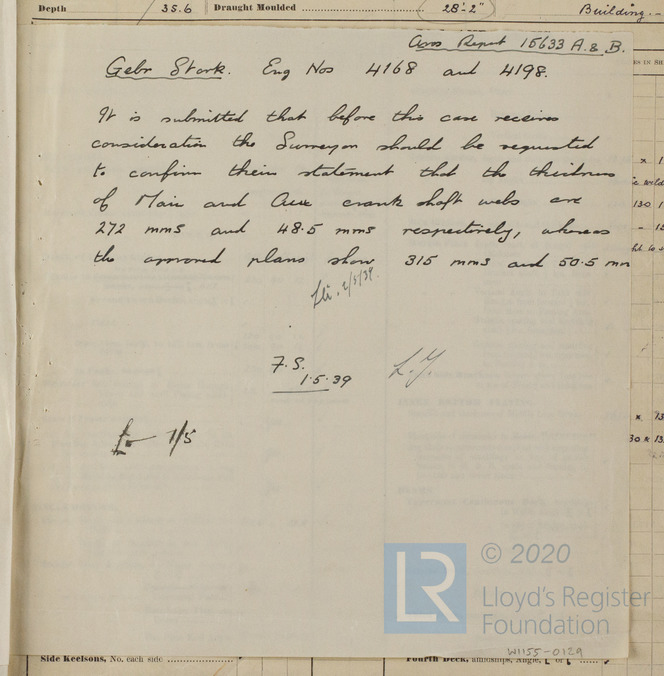 Depth / 35.6 Draught Moulded 28'-2" Building.-
Ams Report 15633 A. & B.
Gebr Stork. Eng Nos 4168 and 4198.
It is submitted that before this case receives
consideration the Surveyor should be requested
to confirm their statement that the thickness
of Main and Aux crank shaft webs are
272 mms and 48.5 mms respectively, whereas
the approved plans show 315 mms and 50.5 mm
2/5/39.
F.S.
1.5.39
L.Y.
1/5
LR
© 2020
Lloyd's Register
Foundation
W1155-0129
Side Keelsons, No. each side
Fourth Deck, amidships, Angle,